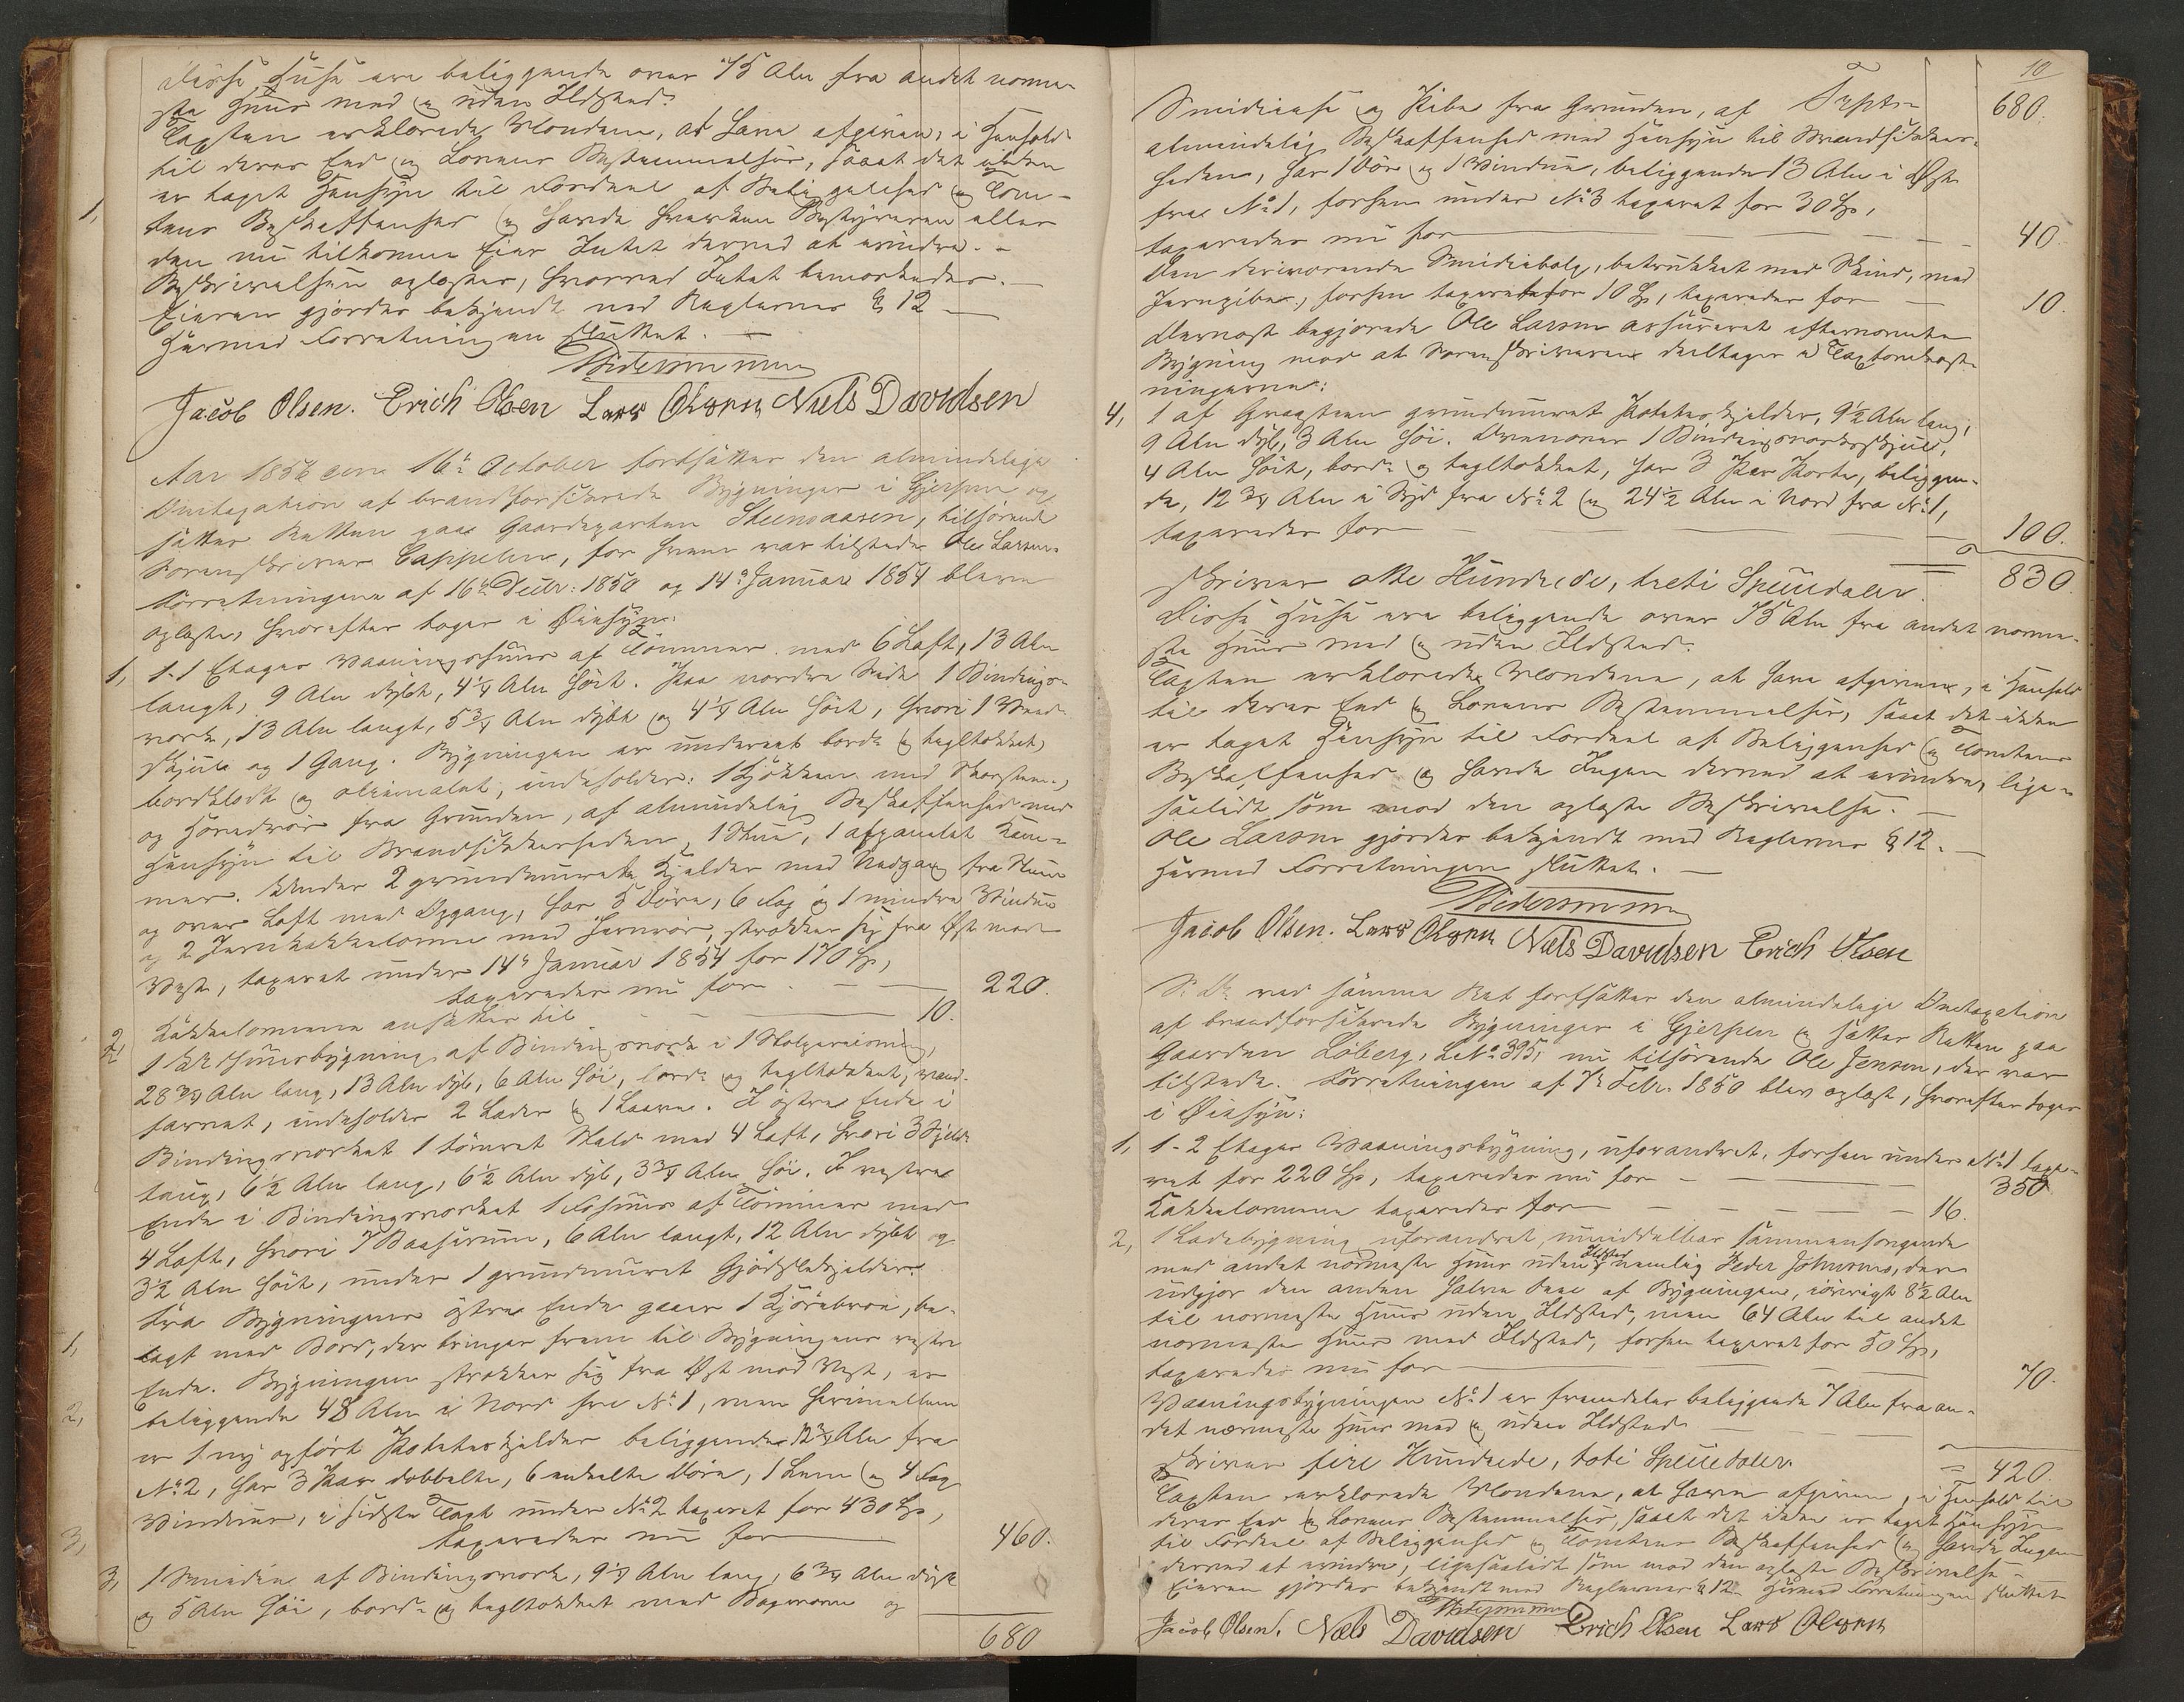 Disse Huse ere beliggende over 75 Alen fra andet nærme-
ste Huus med og uden Ildsted.
Taxten erklærede Mændene, at have afgiven, i Henhold
til deres Eed og Lovens Bestemmelser, saaat det ikke
er taget Hensyn til Fordeel af Beliggenhed og Tom-
tens Beskaffenhed og havde hverken Bestyreren eller
den nu tilkomne Eier Intet derved at erindre. -
Beskrivelsen oplæstes, hvorved Intet bemærkedes. -
Eieren gjordes bekjendt med Reglernes § 12 -
Hermed Forretningen sluttet. -
Jacob Olsen. Erich Olsen Lars Olsen Niels Davidsen
Aar 1856 den 16de October fortsattes den almindelige
Omtaxation af brandforsikrede Bygninger i Gjerpen og
sattes Retten paa Gaardeparten Steensaasen, tilhørende
Sorenskriver Cappelen, for hvem var tilstede Ole Larsen.
Forretningerne af 16de Decbr: 1850 og 14de Januar 1854 bleve
oplæste, hvorefter toges i Øiesyn:
1, 1-1 Etages Vaaningshuus af Tømmer med 6 Laft, 13 Alen
langt, 9 Alen dybt, 4¼ Alen høit. Paa nordre Side 1 Bindings-
værk, 13 Alen langt, 5¾ Alen dybt og 4¼ Alen høit, hvori 1 Ved-
skjule og 1 Gang. Bygningen er underneat bord- og tegltækket,
bordklædt og oliemalet, indeholder: 1 Kjøkken med Skorsteen,
og fra Grunden, af almindelig Beskaffenhed med
Hensyn til Brandsikkerheden, 1 Stue, 1 afpanelet Kam-
mer. Under 2 grundmurede Kjelder med Nedgang fra Stuen
og over Loft med Opgang, har 5 Døre, 6 Fag og 1 mindre Vindue
og 2 Jernkakkelovne med Jernrør, strækker sig fra Øst mod
Vest, taxeret under 14de Januar 1854 for 170 Sp,
taxeredes nu for - - - 220.
Kakkelovnene ansattes til - - 10.
2, 1 Udhuusbygning af Bindingsværk i 1 Stolpereisning,
28¾ Alen lang, 13 Alen dyb, 6 Alen høi, bord- og tegltækket, rød-
farvet, indeholder 2 Lader og 1 Laave. I østre Ende i
Bindingsværket 1 Stald med 4 Laft, hvori 3 Spild-
toug, 6½ Alen lang, 6½ Alen dyb, 3¾ Alen høi. I vestre
Ende i Bindingsværket 1 Fæhuus af Tømmer med
4 Laft, hvori 7 Baaserum, 6 Alen langt, 12 Alen dybt og
3½ Alen høit, under 1 grundmuret Gjødselkjelder.
Fra Bygningens østre Ende gaaer 1 Kjørebroe, be-
lagt med Bord, der bringer frem til Bygningens vestre
Ende. Bygningen strækker sig fra Øst mod Vest, er
beliggende 48 Alen i Nord fra No 1, men herimellem
er 1 ny opført Poteteskjelder beliggende 12¾ Alen fra
No 2, har 3 Par dobbelte, 6 enkelte Døre, 1 Lem og 4 Fag
Vinduer, i sidste Taxt under No 2 taxeret for 430 Sp,
taxeredes nu for 460.
3, 1 Smedie af Bindingsværk, 9¼ Alen lang, 6¾ Alen dyb
og 5 Alen høi, bord- og tegltækket med Bagerovn og
680
10
Transp:
Smedieesse og Pibe fra Grunden, af 680.
almindelig Beskaffenhed med Hensyn til Brandsikker-
heden, har 1 Dør og 1 Vindue, beliggende 13 Alen i Øst
fra No 1, forhen under No 3 taxeret for 30 Sp,
taxeredes nu for - - - 40.
Den derværende Smediebælg, betrukket med Skind, med
Jernpiber, forhen taxeret for 10 Sp, taxeredes for - 10.
Dernæst begjærede Ole Larsen assureret efternævnte
Bygning mod at Sorenskriveren deeltager i Taxtomkost-
ningerne:
4, 1 af Graasteen grundmuret Poteteskjelder, 9½ Alen lang,
9 Alen dyb, 3 Alen høi. Derover 1 Bindingsværksskjul,
4 Alen høit, bord- og tegltækket, har 3 Par Porte, beliggen-
de, 12¾ Alen i Syd fra No 2 og 24½ Alen i Nord fra No 1,
taxeredes for - - - 100.
skriver otte Hundrede, treti Speciedaler. 830.
Disse Huse ere beliggende over 75 Alen fra andet nærme-
ste Huus med og uden Ildsted.
Taxten erklærede Mændene, at have afgiven, i Henhold
til deres Eed og Lovens Bestemmelser, saaat det ikke
er taget Hensyn til Fordeel af Beliggenhed og Tomtens
Beskaffenhed og havde Ingen derved at erindre, lige-
saalidt som mod den oplæste Beskrivelse. -
Ole Larsen gjordes bekjendt med Reglernes § 12. -
Hermed Forretningen sluttet. -
Jacob Olsen. Lars Olsen Niels Davidsen Erich Olsen
S. D. ved samme Ret fortsattes den almindelige Omtaxation
af brandforsikrede Bygninger i Gjerpen og sattes Retten paa
Gaarden Løberg, L.No 395, nu tilhørende Ole Jensen, der var
tilstede. Forretningen af 7de Febr. 1850 blev oplæst, hvorefter toges
i Øiesyn:
1, 1-2 Etages Vaaningsbygning, uforandret, forhen under No 1 taxe-
ret for 220 Sp, taxeredes nu for - - - 350
Kakkelovnene taxeredes for - - - 16.
2, 1 Ladebygning uforandret, umiddelbar sammenhængende
med andet nærmeste Huus uden Ildsted nemlig Peder Johnsens, der
udgjør den anden halve Deel af Bygningen, iøvrigt 8½ Alen
til nærmeste Huus uden Ildsted, men 64 Alen til andet
nærmeste Huus med Ildsted, forhen taxeret for 50 Sp,
taxeredes nu for 70.
Vaaningsbygningen No 1 er fremdeles beliggende 7 Alen fra an-
det nærmeste Huus med og uden Ildsted
skriver fire Hundrede, tyve Speciedaler. 420.
Taxten erklærede Mændene, at have afgiven, i Henhold til
deres Eed og Lovens Bestemmelser, saaat det ikke er taget Hensyn
til Fordeel af Beliggenhed og Tomtens Beskaffenhed og havde Ingen
derved at erindre, ligesaalidt som mod den oplæste Beskrivelse -
Eieren gjordes bekjendt med Reglernes § 12. Hermed Forretningen sluttet
Jacob Olsen. Niels Davidsen Erich Olsen Lars Olsen